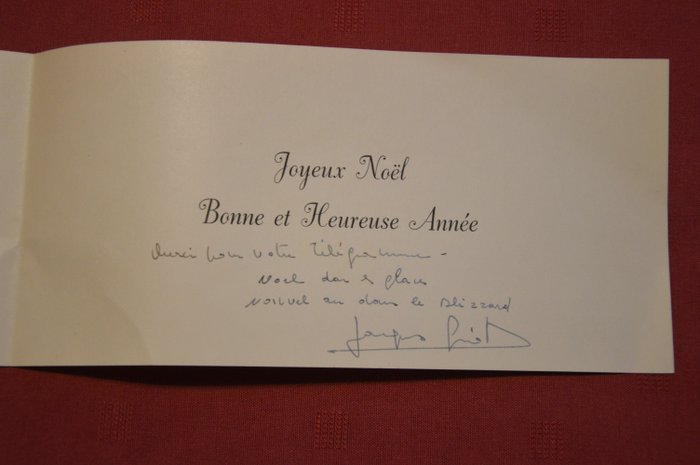 Joyeux Noël
Bonne et Heureuse Année
Merci pour votre Télégramme -
Noel dans glaces
nouvel an dans le Blizzard
Jacques